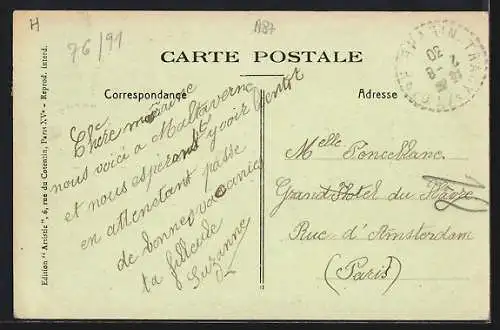 H
A87
96/91
CARTE POSTALE
Correspondance
Adresse
Chère marraine
nous voici à Maltaverne
et nous espérons t'y voir bientot
en attenstant passe
de bonnes vacances
ta filleule
Suzanne
Melle Poncellanc
Grand Hotel du Havre
Rue d'Amsterdam
(Paris)
Edition "Artistic", 6, rue du Corentin, Paris XVe - Reprod. interd.